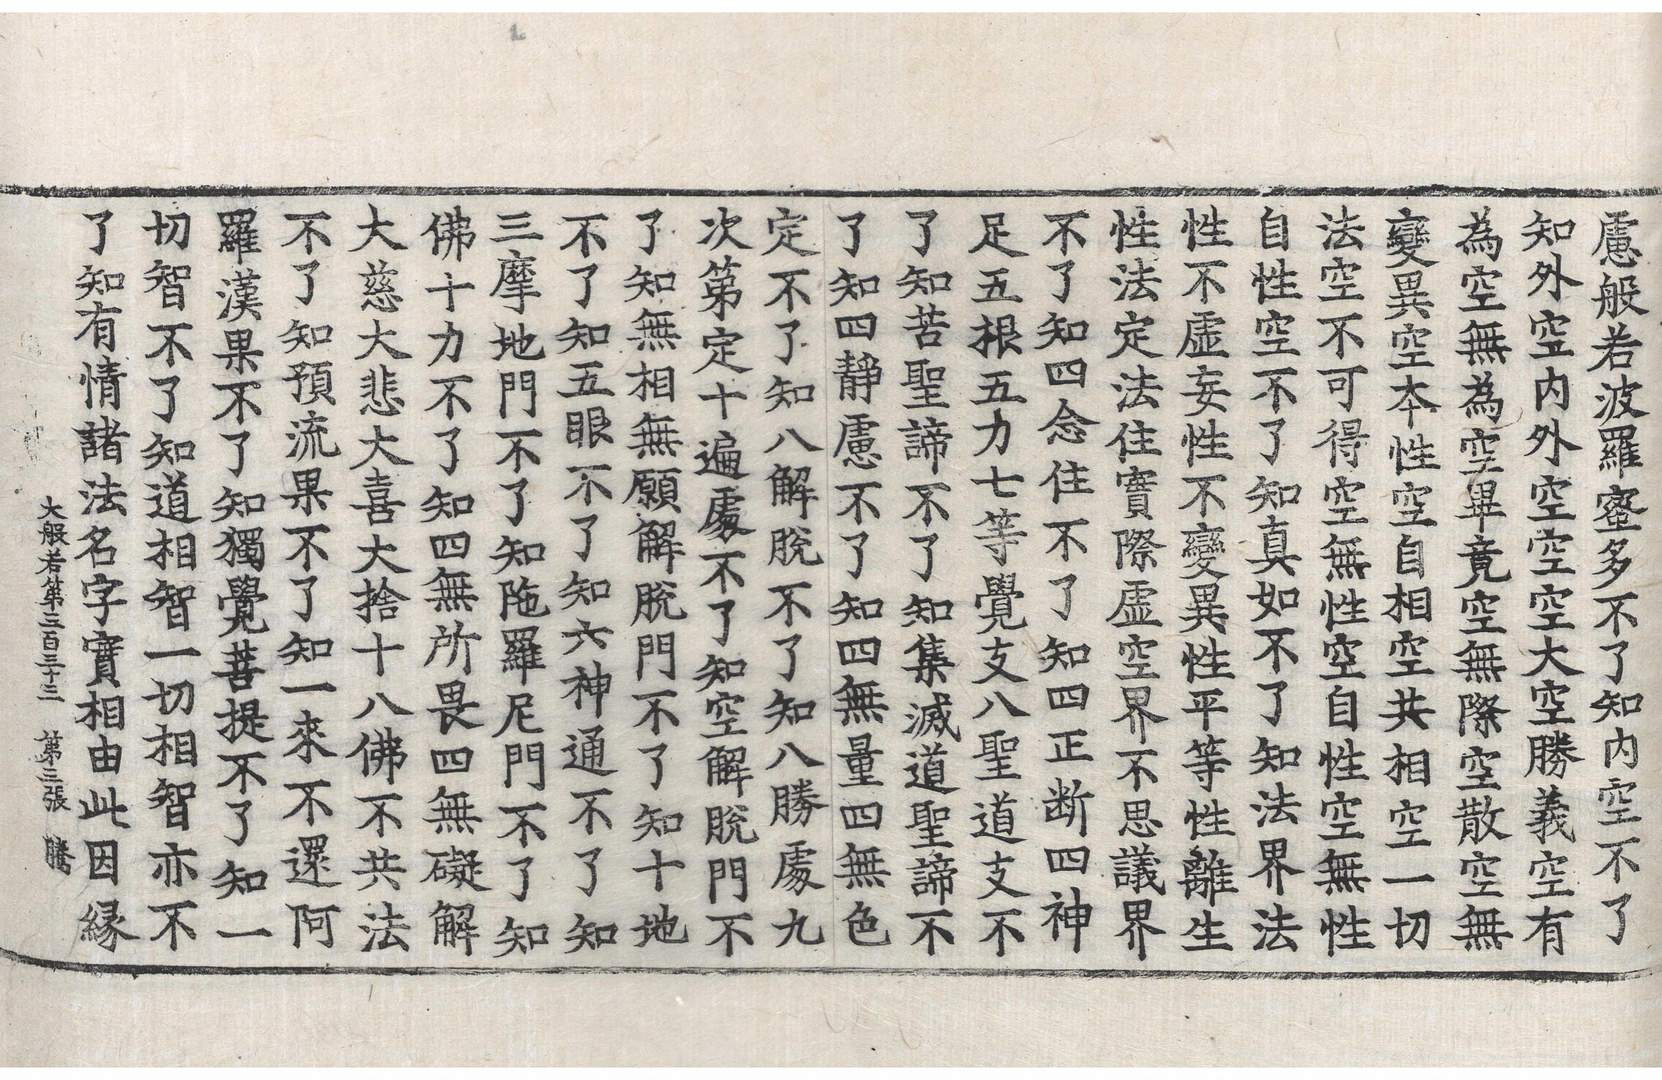 慮般若波羅蜜多不了知内空不了
知外空内外空空空大空勝義空有
為空無為空畢竟空無際空散空無
變異空本性空自相空共相空一切
法空不可得空無性空自性空無性
自性空不了知真如不了知法界法
性不虛妄性不變異性平等性離生
性法定法住實際虛空界不思議界
不了知四念住不了知四正断四神
足五根五力七等覺支八聖道支不
了知苦聖諦不了知集滅道聖諦不
了知四靜慮不了知四無量四無色
定不了知八解脫不了知八勝處九
次第定十遍處不了知空解脫門不
了知無相無願解脫門不了知十地
不了知五眼不了知六神通不了知
三摩地門不了知陁羅尼門不了知
佛十力不了知四無所畏四無礙解
大慈大悲大喜大捨十八佛不共法
不了知預流果不了知一來不還阿
羅漢果不了知獨覺菩提不了知一
切智不了知道相智一切相智亦不
了知有情諸法名字實相由此因縁
大般若第三百三十三 第三張 騰